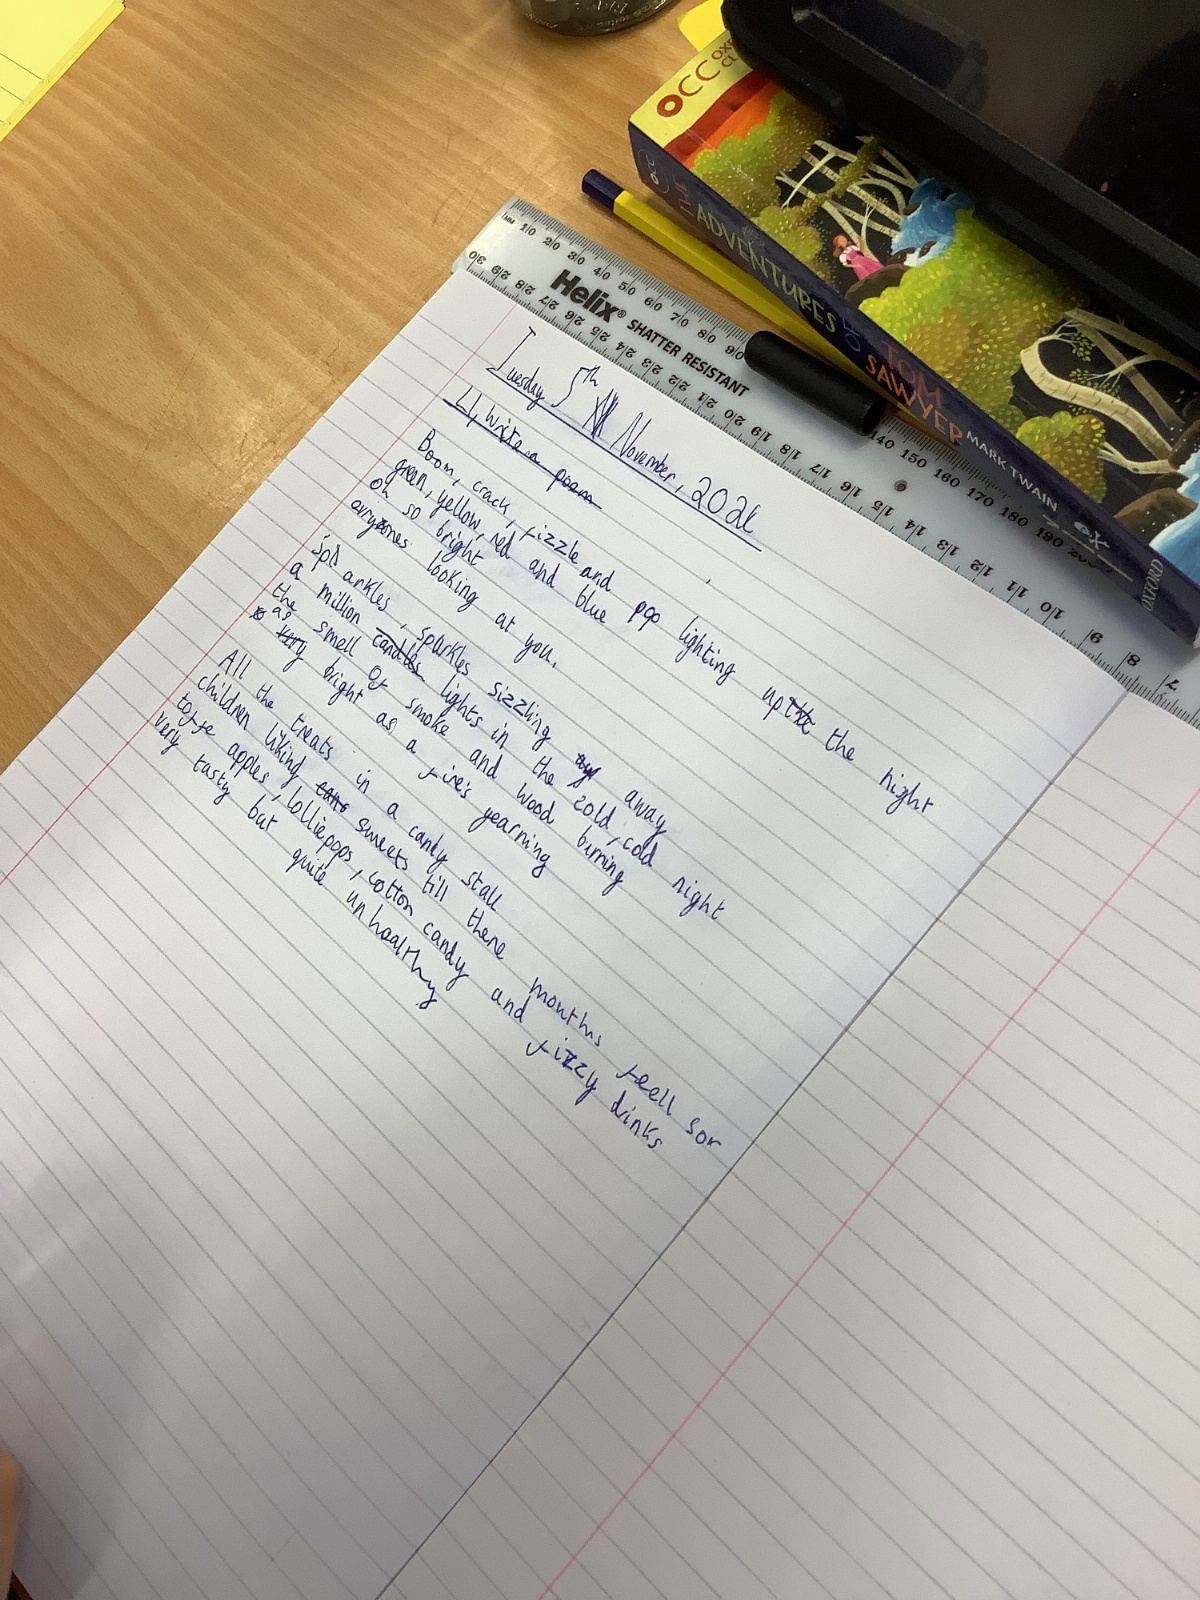 OCC
OCC OXFORD
THE ADVENTURES OF TOM SAWYER MARK TWAIN
OXFORD
MM 10 20 30 40 50 60 70 80 90 140 150 160 170 180 190
Helix® SHATTER RESISTANT
30 29 28 27 26 25 24 23 22 21 20 19 18 17 16 15 14 13 12 11 10 9 8 7
Tuesday 5th November, 2024
LI Write a poem
Boom, crack, fizzle and pop lighting up the the night
green, yellow, red and blue
Oh so bright
everyones looking at you.
Sparkles, sparkles sizzling away
a million candles lights in the cold, cold night
the smell of smoke and wood burning
as very bright as a fire's yearning
All the treats in a candy stall
children liking sweets till there mouths feell sor
toffe apples, lolliepops, cotton candy and fizzy drinks
very tasty but quite unhealthy